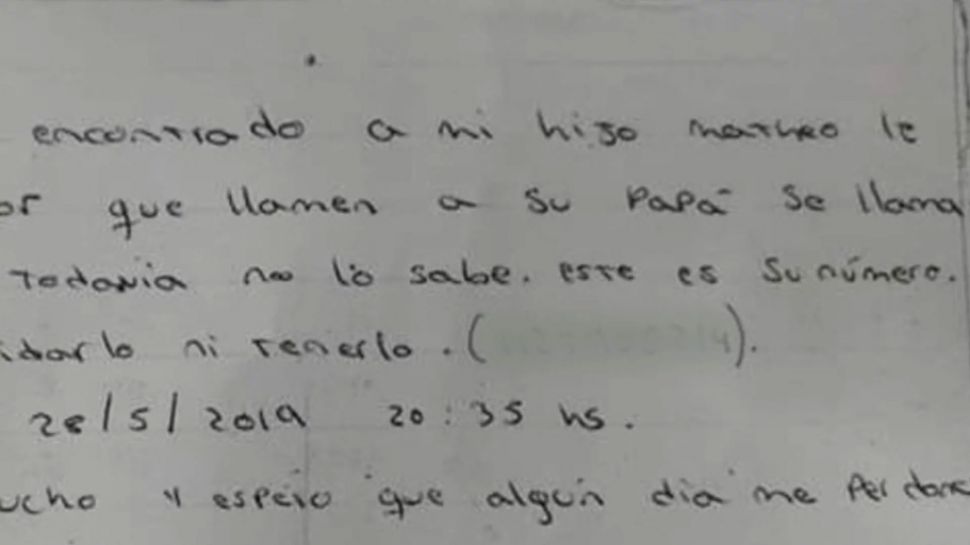 encontrado a mi hijo matheo le
or que llamen a su papá se llama
Todavia no lo sabe. este es su número.
idarlo ni tenerlo. ( ).
28/5/2019 20:35 hs.
ucho y espero que algún dia me perdone